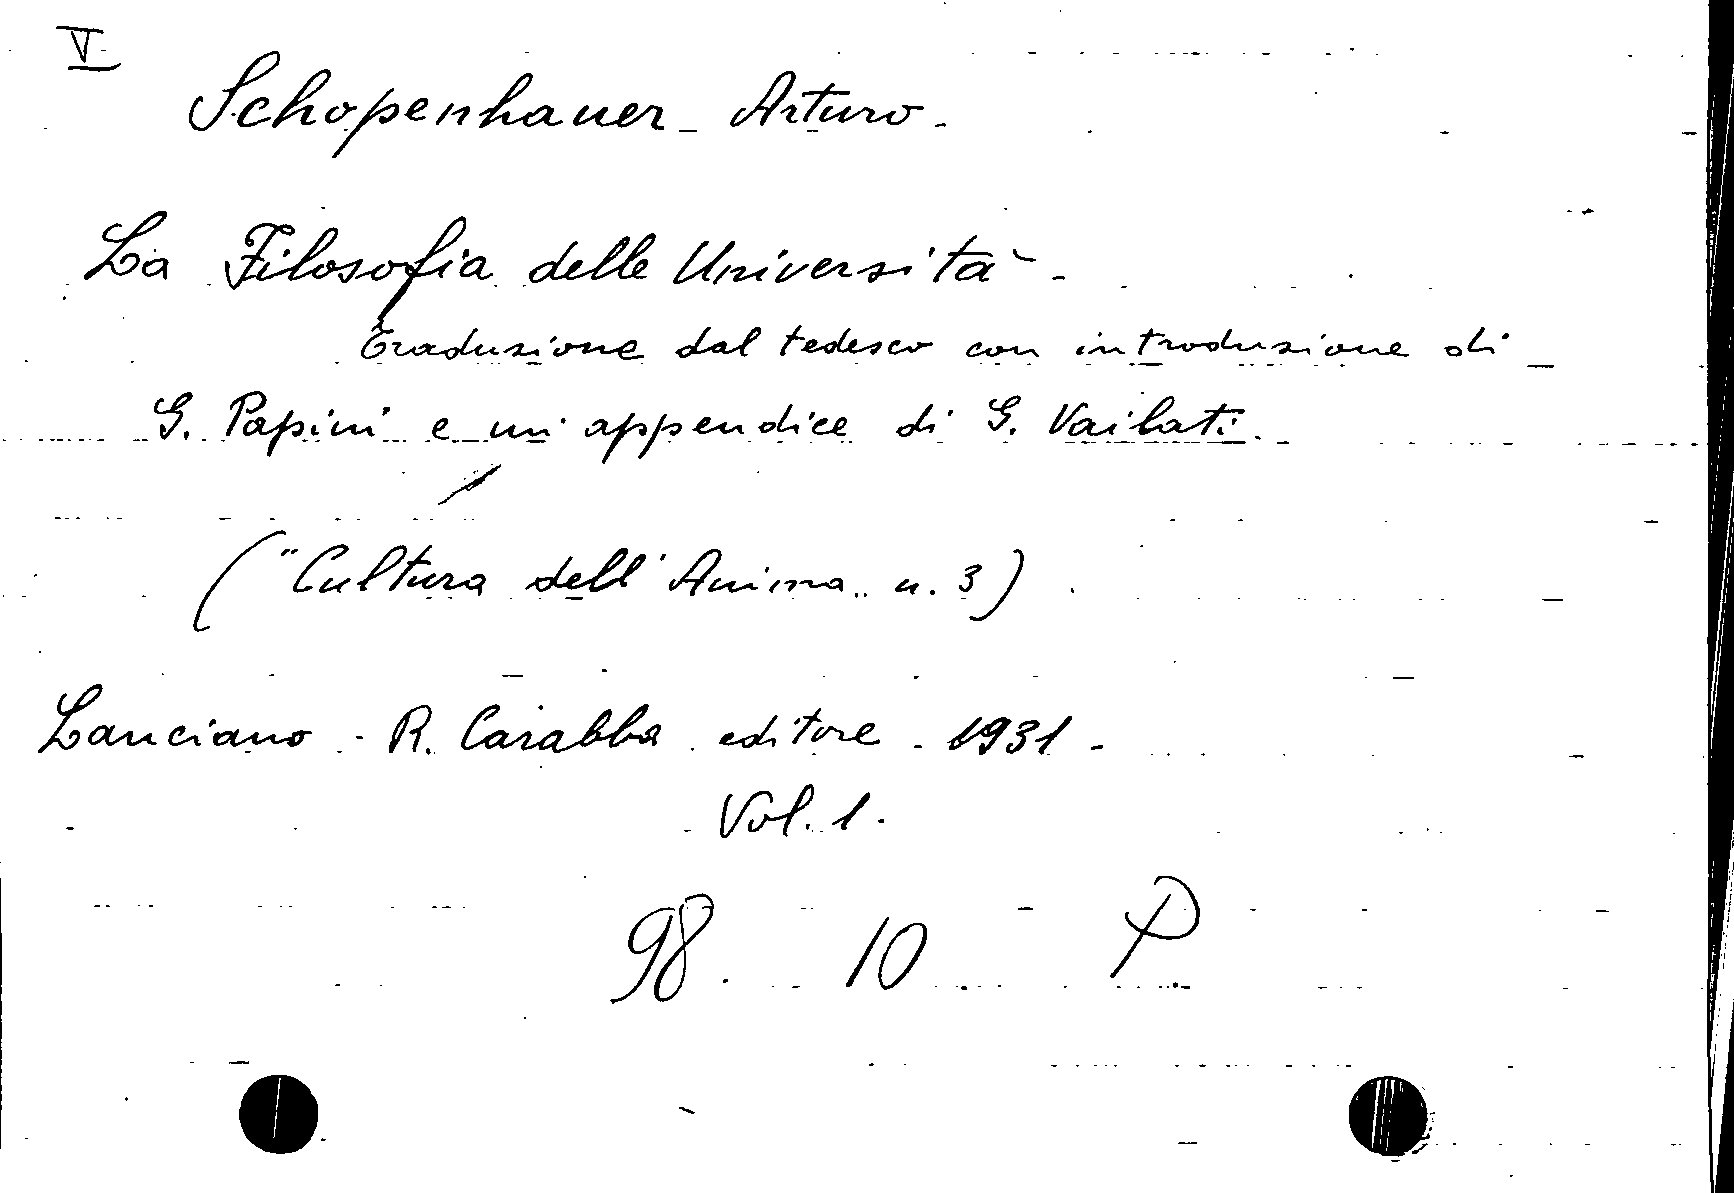 V
Schopenhauer - Arturo.
La Filosofia delle Università -
Traduzione dal tedesco con introduzione di
G. Papini e un' appendice di G. Vailati.
("Cultura dell'Anima„ n. 3)
Lanciano - R. Carabba editore - 1931 -
Vol. 1.
98. 10 P